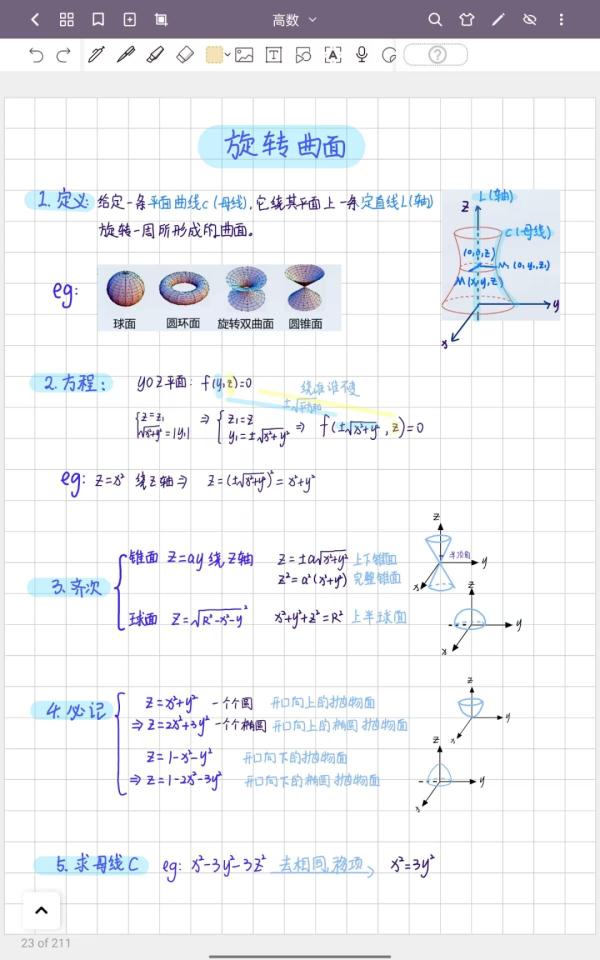 高数
旋转曲面
1.定义: 给定一条平面曲线C(母线),它绕其平面上一条定直线L(轴)
旋转一周所形成的曲面。
z L(轴)
C(母线)
(0,0,z) M₁(0,y₁,z₁)
M(x,y,z)
y
x
eg:
球面 圆环面 旋转双曲面 圆锥面
2.方程: yOz平面: f(y,z)=0 绕谁谁不变
±√平方和
{z=z₁ √x²+y²=|y₁| ⇒ {z₁=z y₁=±√x²+y² ⇒ f(±√x²+y², z)=0
eg: z=x² 绕z轴⇒ z=(±√x²+y²)²=x²+y²
3.齐次
锥面 z=ay 绕z轴 z=±a√x²+y² 上下锥面
z²=a²(x²+y²) 完整锥面
z
半顶角
y
x
球面 z=√R²-x²-y² x²+y²+z²=R² 上半球面
z
y
x
4.必记
z=x²+y² 一个个圆 开口向上的抛物面
⇒ z=2x²+3y² 一个个椭圆 开口向上的椭圆抛物面
z
y
x
z=1-x²-y² 开口向下的抛物面
⇒ z=1-2x²-3y² 开口向下的椭圆抛物面
z
y
x
5.求母线C eg: x²-3y²-3z² 去相同,移项 x²=3y²
23 of 211